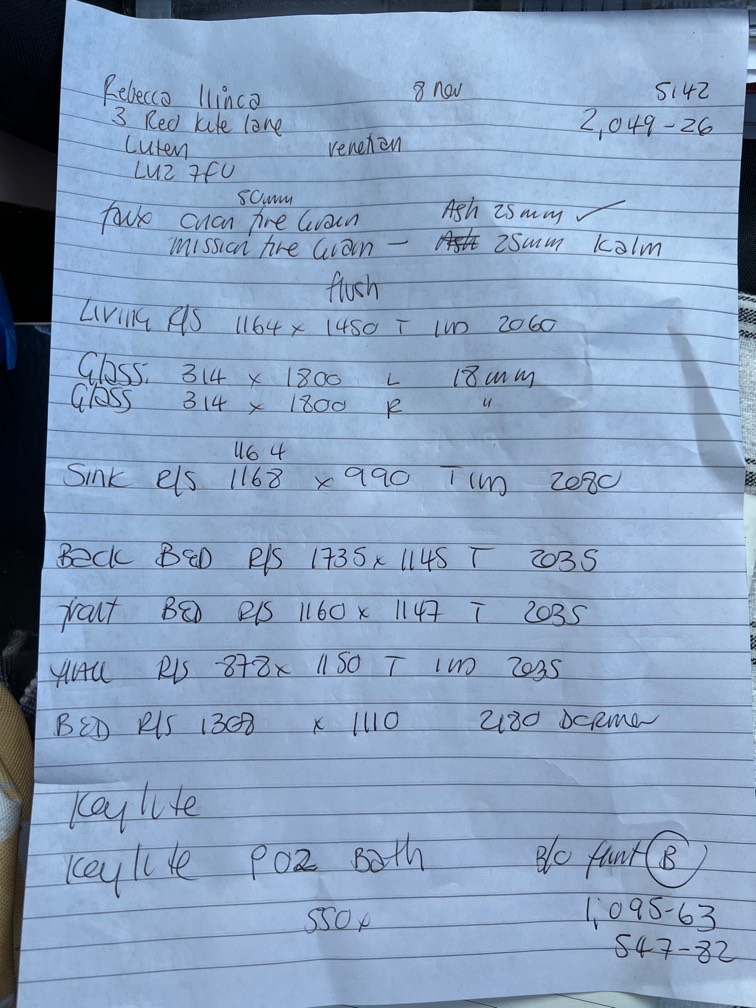 Rebecca Ilinca 8 Nov 5142
3 Red Kite lane 2,049-26
Luten venetian
LU2 7FU
50mm
faux fire Grain Ash 25mm ✓
mission fire Grain - Ash 25mm Kalm
flush
LIVING R/S 1164 x 1450 T 1m 2060
Glass. 314 x 1800 L 18mm
Glass 314 x 1800 R "
1164
SINK R/S 1168 x 990 T 1m 2080
Back BED R/S 1735 x 1145 T 2035
front BED R/S 1160 x 1147 T 2035
R/S 878 x 1150 T 1m 2035
BED R/S 1308 x 1110 2180 Dormer
Keylite
Keylite P02 Bath B/O front B
550x 1,095-63
547-82